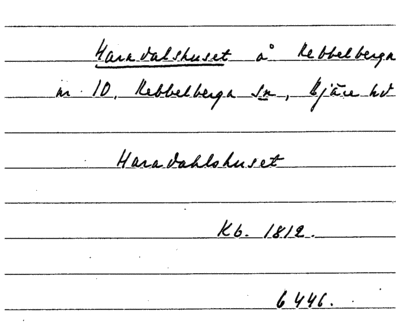 Haradalshuset å Rebbelberga
nr 10. Rebbelberga sn, Bjäre hd
Haradahlshuset
Kb. 1812.
6446.